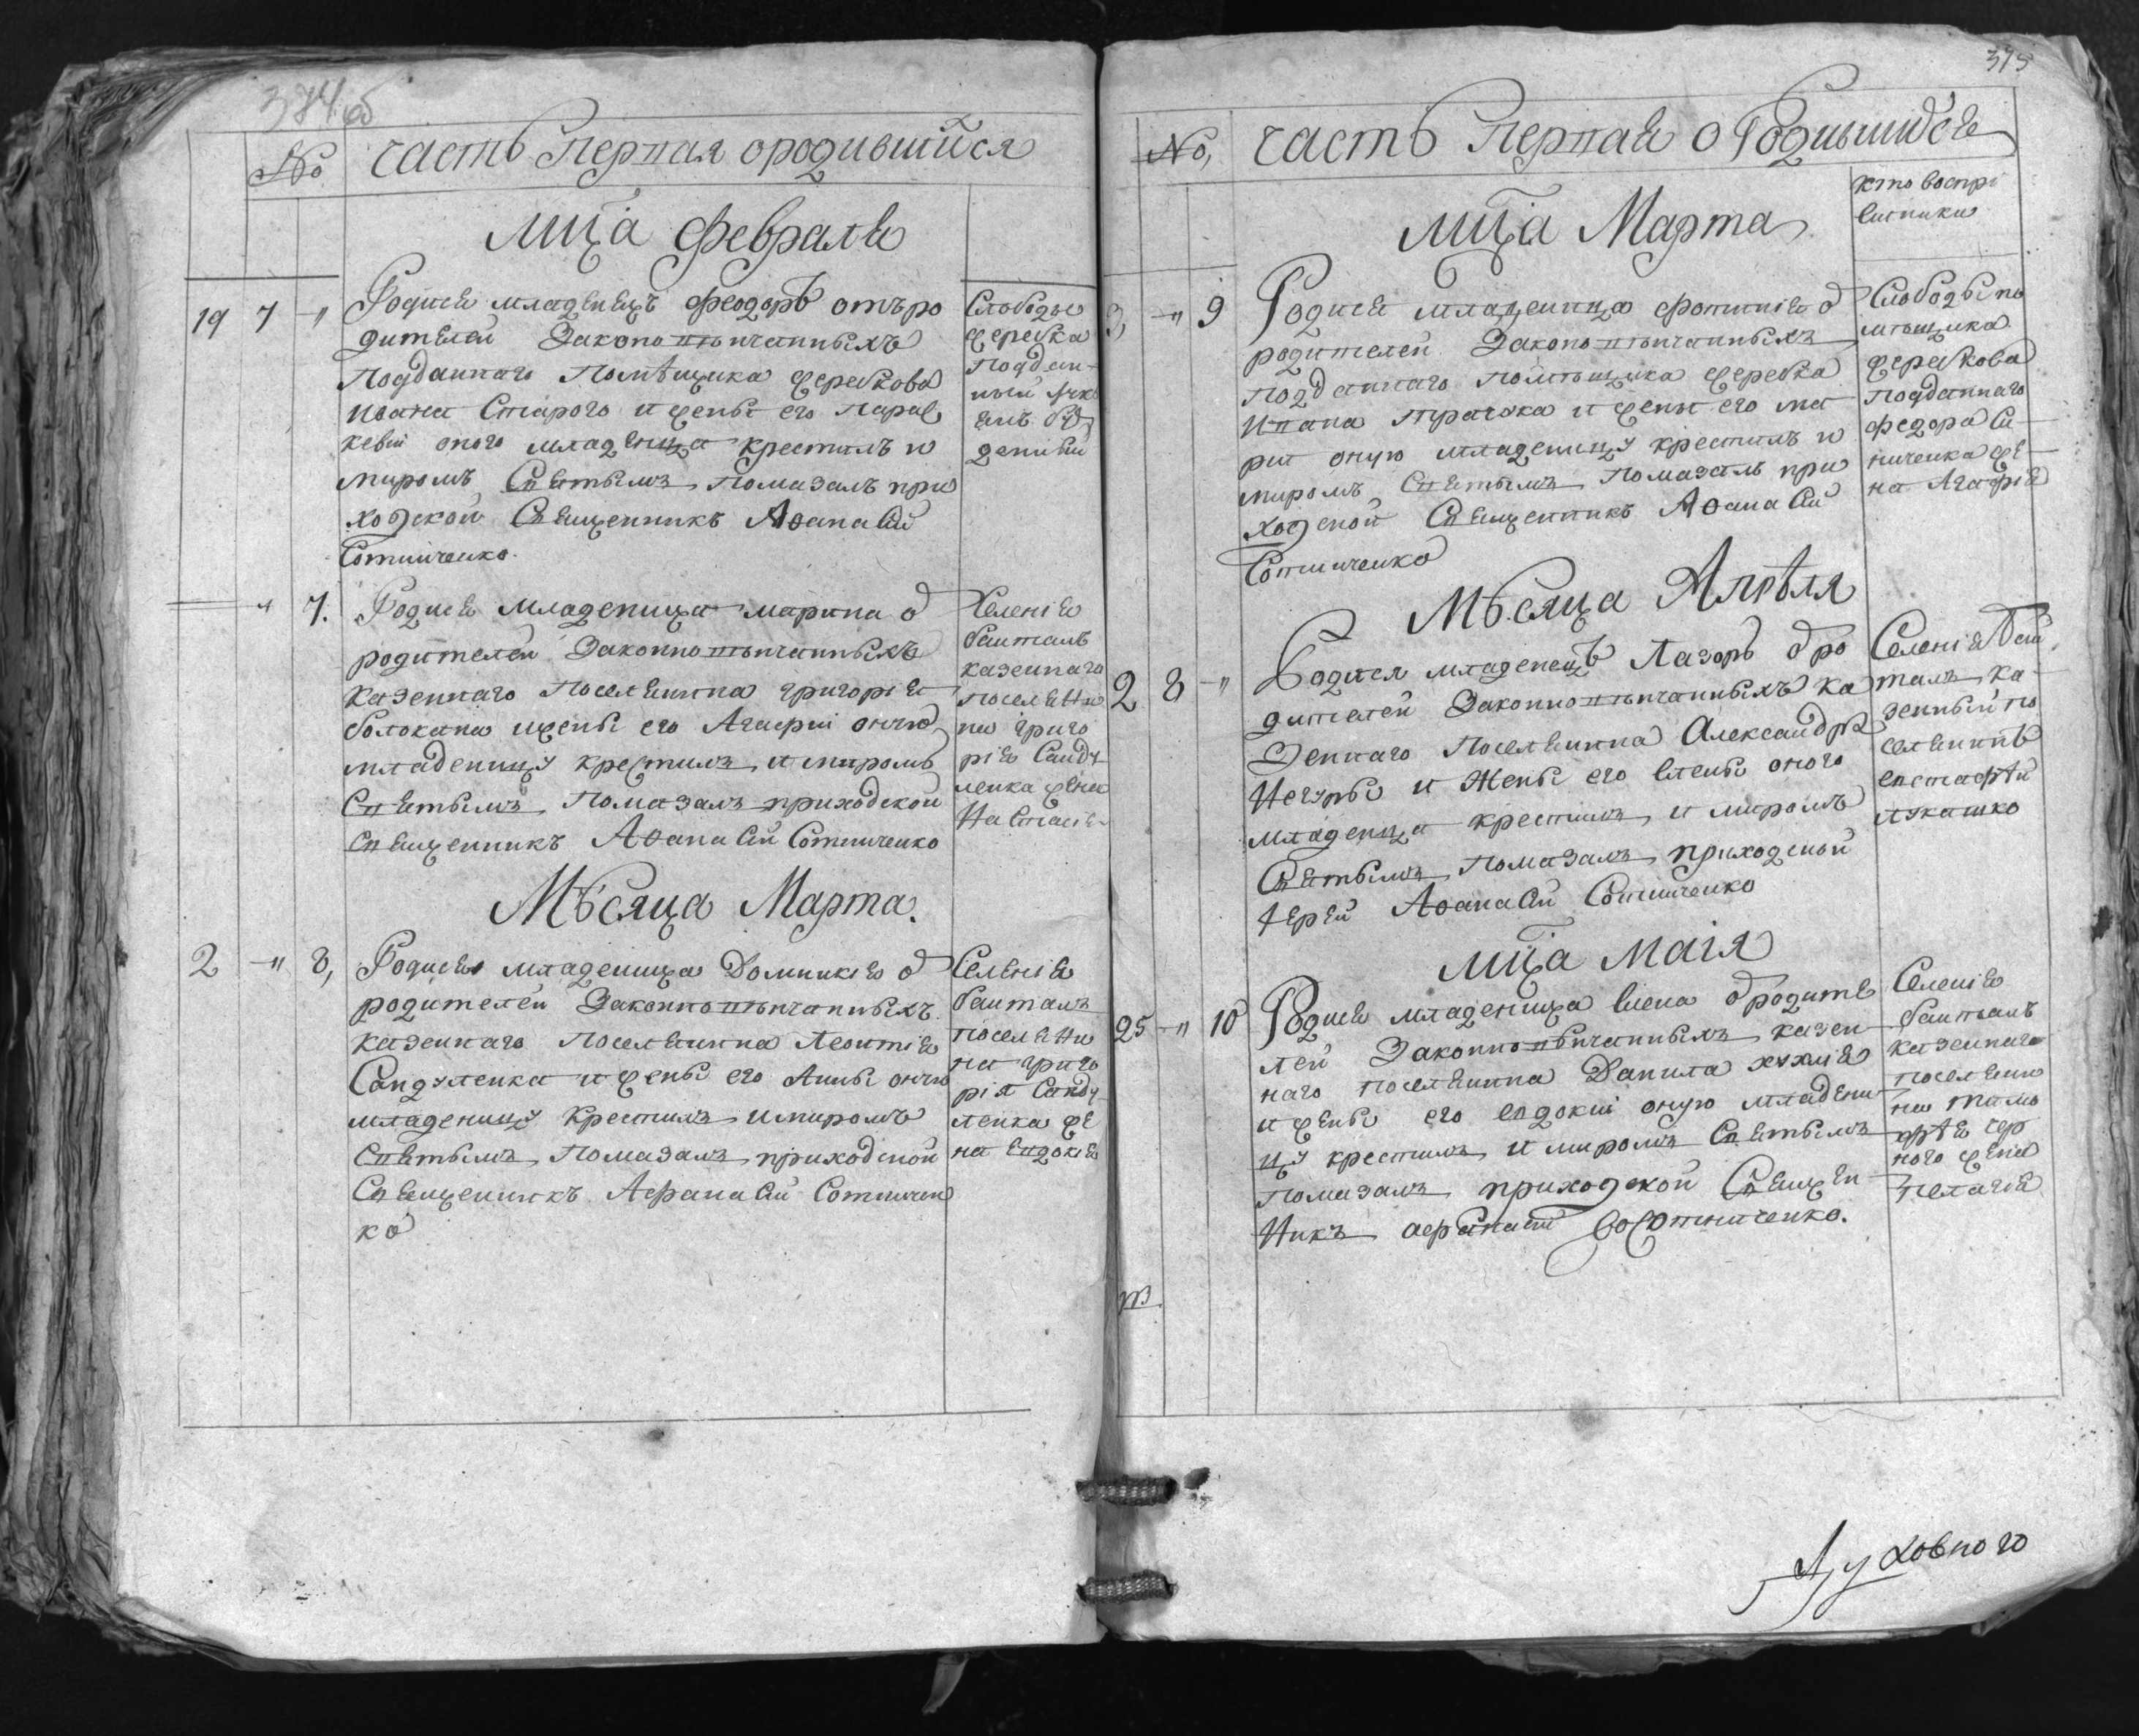 374об
№ часть Первая ородившихся
Мца Февраля
19 7 "
Родися младенецъ Феодоръ отъро
дителей Законовѣнчанныхъ
Подданнаго Помѣщика Жеребкова
Ивана Старого и жены его Парас
кевіи оного младенца крестилъ и
миромъ Святымъ Помазалъ при
ходской Священникъ Аѳанасій
Сотниченко
Слободы
Жеребка
Поддан
ный
" 7.
Родися Младеница марина от
родителей Законновѣнчанныхъ
казеннаго Поселянина григорія
болокана ижены его Агафіи оную
младеницу крестилъ и миромъ
Святымъ Помазалъ приходской
Священникъ Аѳанасій Сотниченко
Селенія
баиталъ
казеннаго
поселяни
на григо
рія Санду
ленка жена
Настасія
Мѣсяца Марта.
2 " 8,
Родися младеница Домникія от
родителей Законновѣнчанныхъ
казеннаго Поселянина Леонтія
Сандуленка и жены его Анны оную
младеницу крестилъ имиромъ
Святымъ Помазалъ приходской
Священникъ Афанасій Сотничен
ко
Селенія
баиталъ
поселяни
на григо
рія Санду
ленка же
на Евдокія
375
№, часть Первая о Родившихся
Мца Марта
кто воспрі
емники
3, " 9
Родися младеница фотинія от
родителей Законовѣнчанныхъ
подданнаго помѣщика Жеребка
Ивана Трачука и жены его ма
ріи оную младеницу крестилъ и
миромъ Святымъ Помазалъ при
ходской Священникъ Аѳанасій
Сотниченко
Слободы по
мѣщика
Жеребкова
Подданнаго
Федора Си
ниченка же
на Агафія
Мѣсяца Апрѣля
2 8 "
Родися младенецъ Лазорь от ро
дителей Законновѣнчанныхъ ка
зеннаго Поселянина Александра
Негуры и Жены его Елены оного
младенца крестилъ и миромъ
Святымъ Помазалъ приходской
Іерей Аѳанасій Сотниченко
Селенія баи
талъ ка
зенный по
селянинъ
евстафѣй
лукашко
Мца Маія
25 " 10
Родися младеница Елена от родите
лей Законновѣнчанныхъ казен
наго поселянина Данила
и жены его евдокіи оную младени
цу крестилъ и миромъ Святымъ
Помазалъ приходской Священ
никъ афанасій Сотниченко.
Селенія
баиталъ
казеннаго
поселяни
на тимо
фѣя чер
ного жена
Пелагія
Духовного